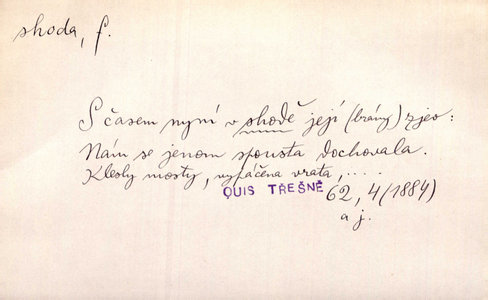 shoda, f.
S časem nyní v shodě její (brány) zjev:
Nám se jenom spousta dochovala.
Klesly mosty, vyvrácena vrata, ....
QUIS TŘEŠNĚ 62, 4 (1884)
a j.